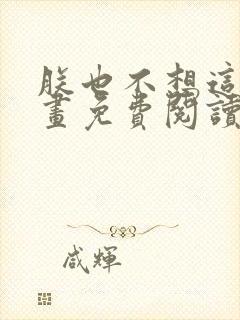 朕也不想這
畫免費閱讀
咸輝